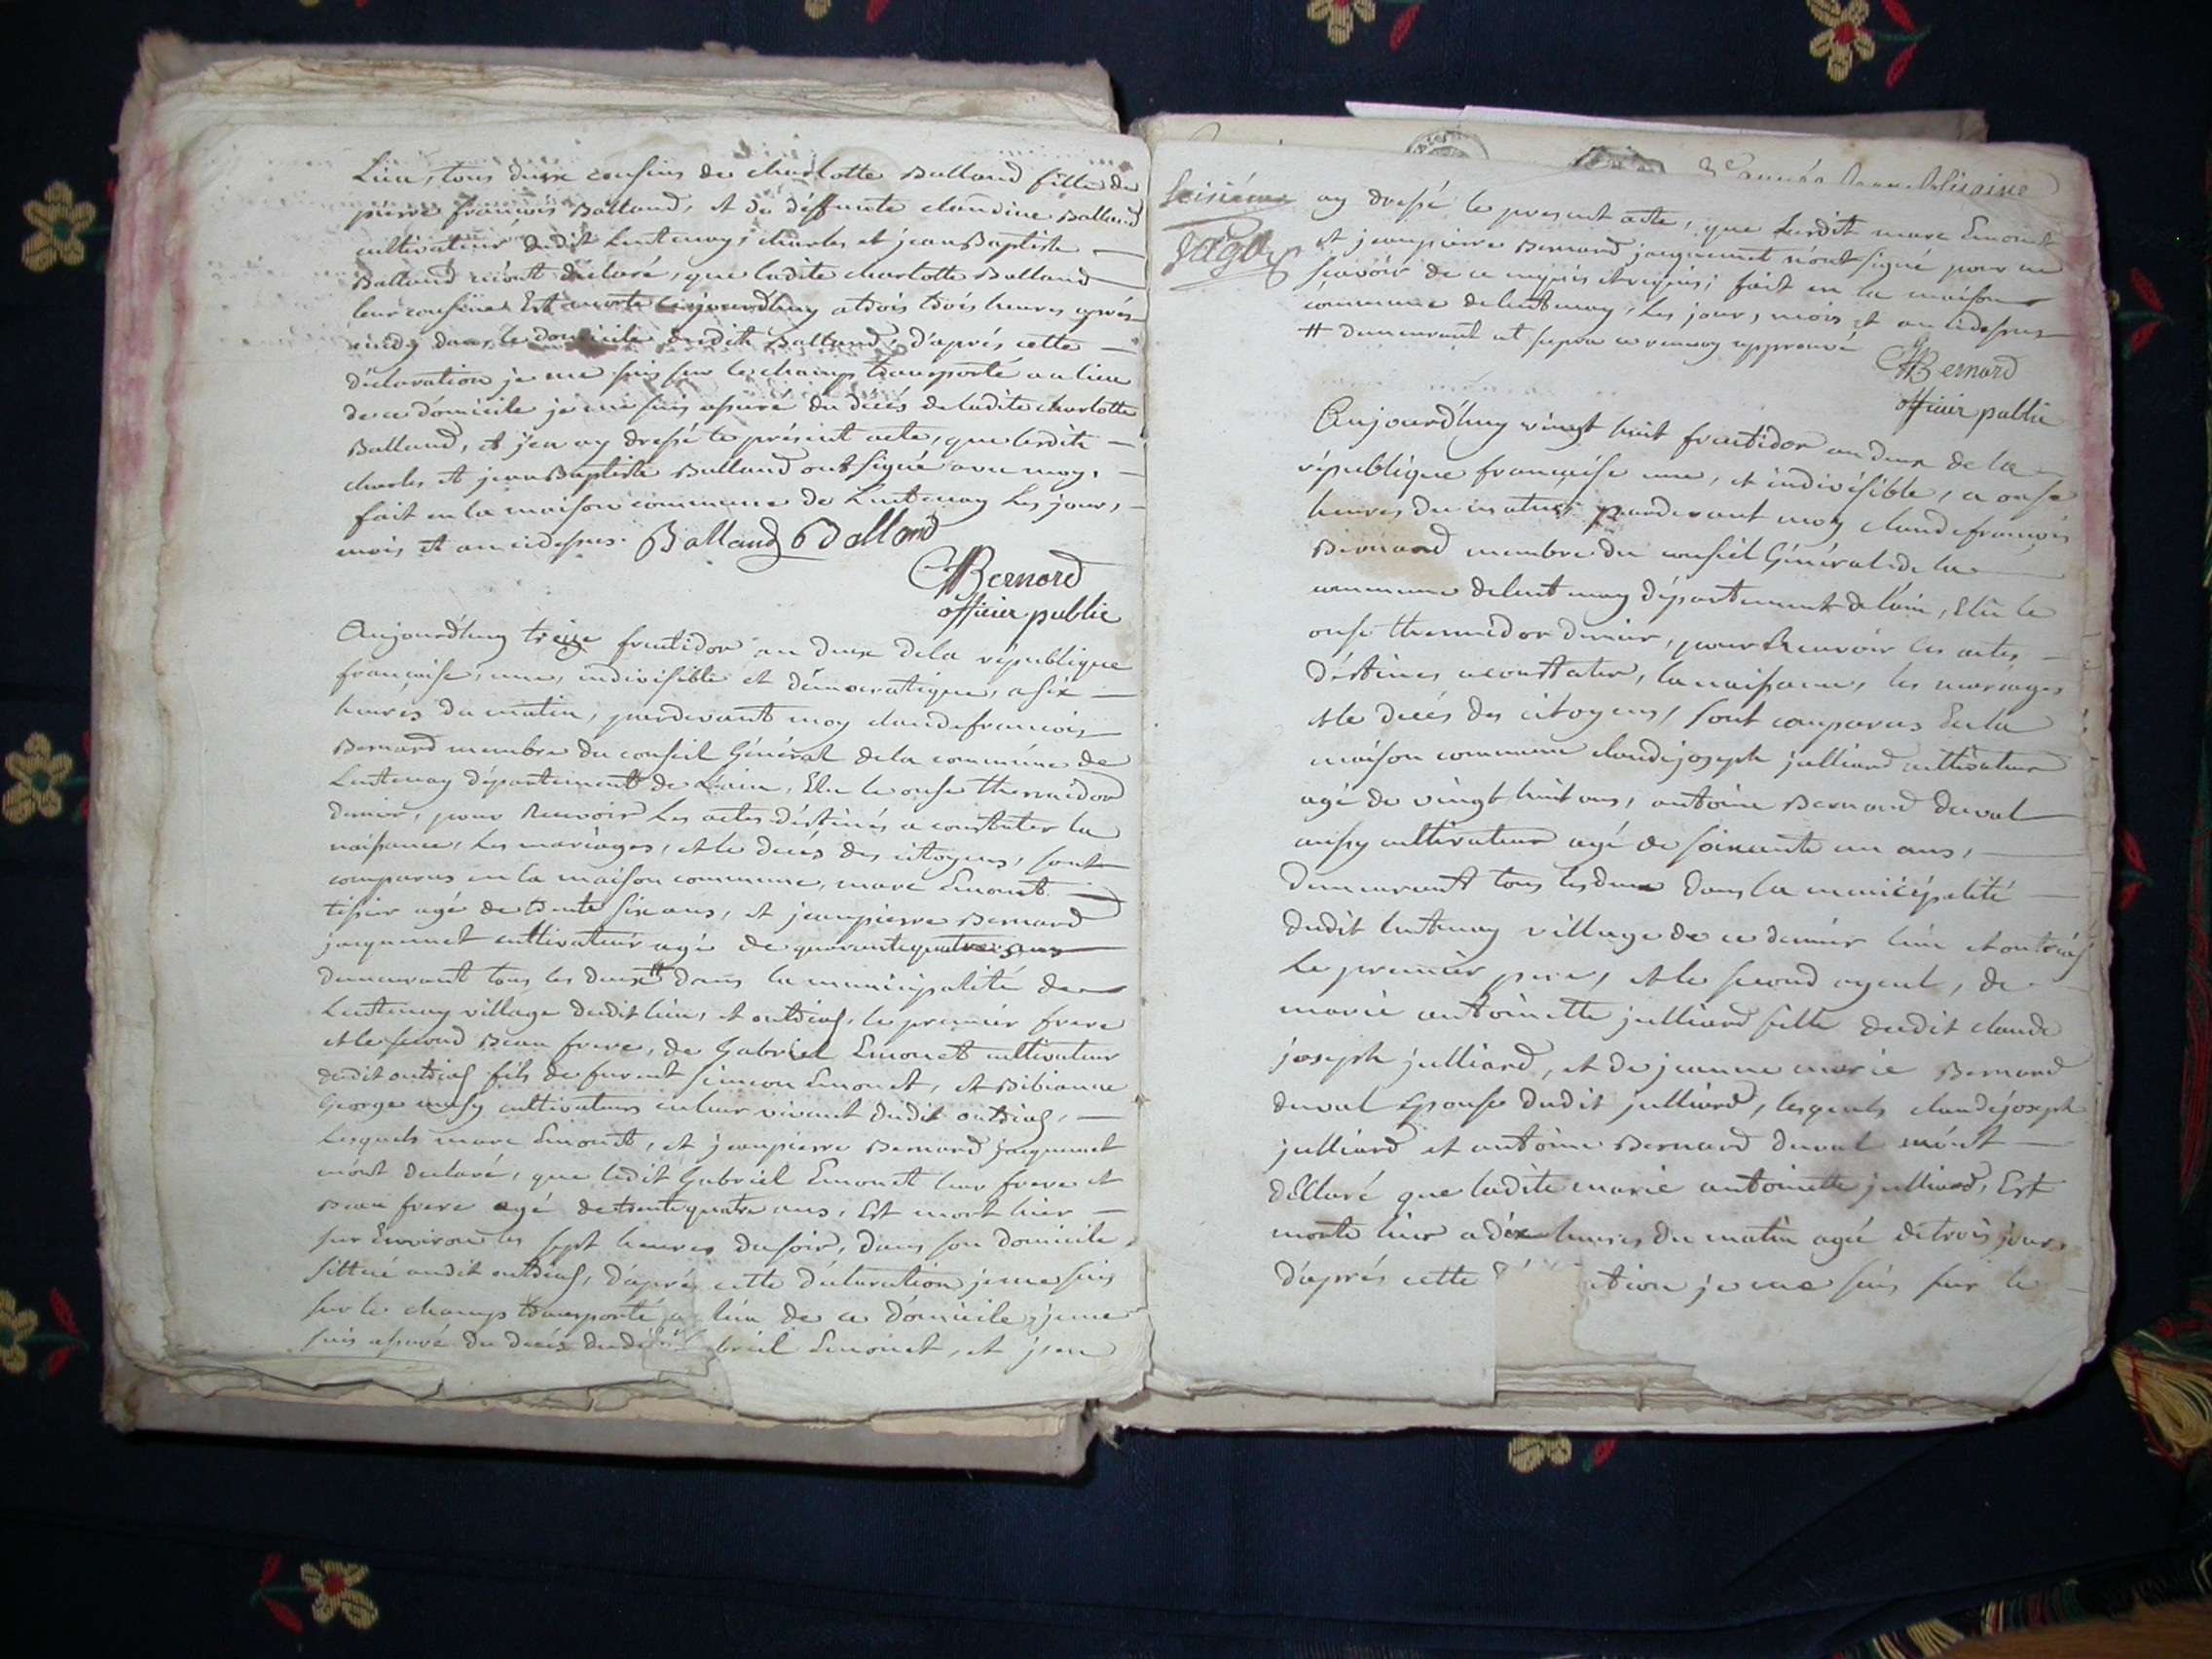 Lieu, tous deux cousins de charlotte Balland fille de
pierre françois Balland, et de déffunte claudine Balland
cultivateur dudit Lentenay, charles et jean Baptiste
Balland m'ont déclaré, que ladite charlotte Balland
leur cousine Est morte cejourdhuy a trois heures après
midy dans le domicile dudit Balland, d'après cette
déclaration je me suis sur le champ transporté au lieu
de ce domicile je me suis assuré du décés de ladite charlotte
Balland, et j'en ay dressé le présent acte, que lesdits
charles et jean Baptiste Balland ont signé avec moy,
fait en la maison commune de Lentenay Les jour,
mois et an cidessus. Balland Balland
Bernard
officier public
Aujourd'huy treize fructidor an deux dela république
française, une, indivisible et démocratique, a six
heures du matin, pardevant moy claude françois
Bernard membre du conseil Général dela commune de
Lentenay département de L'ain, Elu le onse thermidor
dernier, pour Recevoir Les actes déstinés a constater la
naissance, Les mariages, et le décés des citoyens, sont
comparus en la maison commune, marc Emonet
tissier agé de trente six ans, et jean pierre Bernard
jacquemet cultivateur agé de quarante quatre ans
demeurant tous les deux # dans la municipalité de
Lentenay village dudit lieu, et outriaf, le premier frere
et le second Beau frere, de Gabriel Emonet cultivateur
dudit outriaf fils de furent simeon Emonet, et Bibianne
George aussy cultivateurs en leur vivant dudit outriaf,
Lesquels marc Emonet, et jean pierre Bernard jacquemet
m'ont declaré, que ledit Gabriel Emonet leur frere et
Beau frere agé de trente quatre ans, Est mort hier
sur Environ les sept heures du soir, dans son domicile
sittué audit outriaf, d'après cette déclaration je me suis
sur le champ transporté au lieu de ce domicile, je me
suis assuré du décés dudit briel Emonet, et j'en
année Republicaine
Seisième
ay dressé le present acte, que Lesdits marc Emonet
et jean pierre Bernard jacquemet n'ont signé pour ne
scavoir de ce enquis et requis; fait en la maison
commune de lentenay, Les jour, mois et an cidessus
# demeurant ut supra ce renvoy approuvé
Bernard
officier public
Aujourd'huy vingt huit fructidor an deux de la
république française une, et indivisible, a onse
heures du matin pardevant moy claude françois
Bernard membre du conseil Général de la
commune de lentenay département de l'ain, Elû le
onse thermidor dernier, pour Recevoir les actes
déstinés a constater, la naissance, les mariages
et le décés des citoyens, sont comparus En la
maison commune claude joseph julliard cultivateur
agé de vingt huit ans, antoine Bernard duval
aussy cultivateur agé de soixante un ans,
demeurant tous les deux dans la municipalité
dudit lentenay village de ce dernier lieu et outriaf
Le premier pere, et le second ayeul, de
marie antoinette julliard fille dudit claude
joseph julliard, et de jeanne marie Bernard
duval Epouse dudit julliard, lesquels claude joseph
julliard et antoine Bernard duval m'ont
déclaré que ladite marie antoinette julliard, Est
morte hier a dix heures du matin agé de trois jours
d'après cette ation je me suis sur le